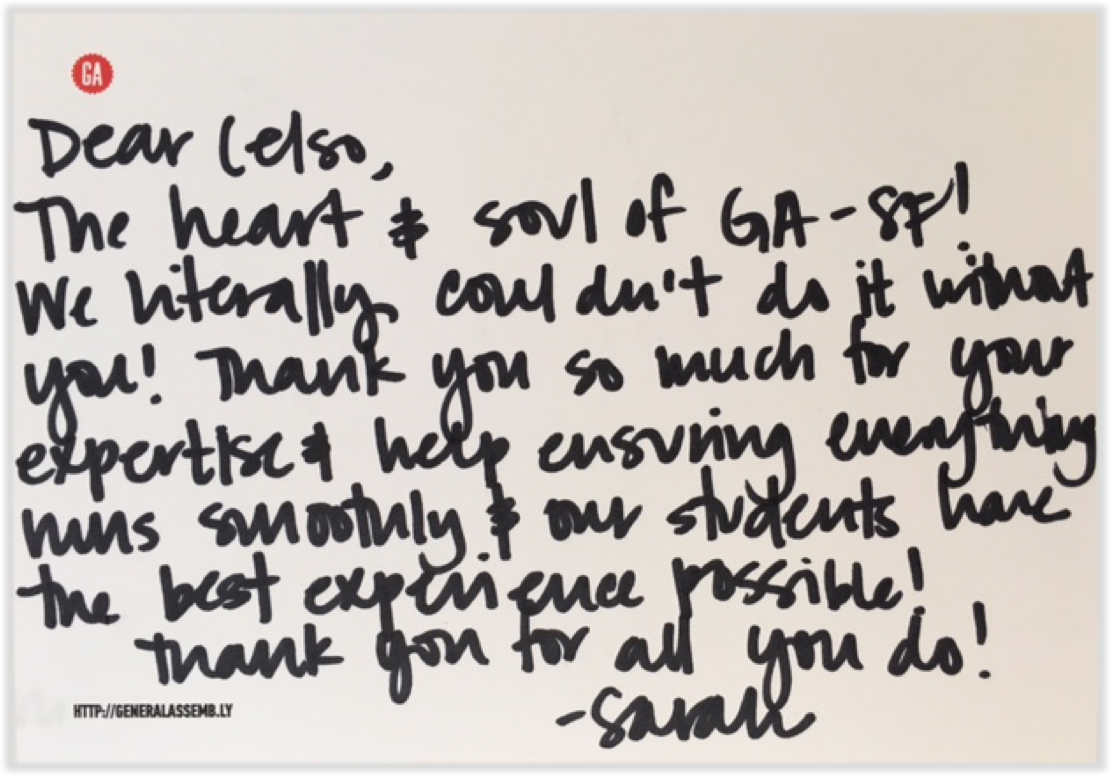 GA
Dear Celso,
The heart & soul of GA-SF!
We literally couldn't do it without
you! Thank you so much for your
expertise & help ensuring everything
runs smoothly & our students have
the best experience possible!
Thank you for all you do!
HTTP://GENERALASSEMB.LY
-Sarah